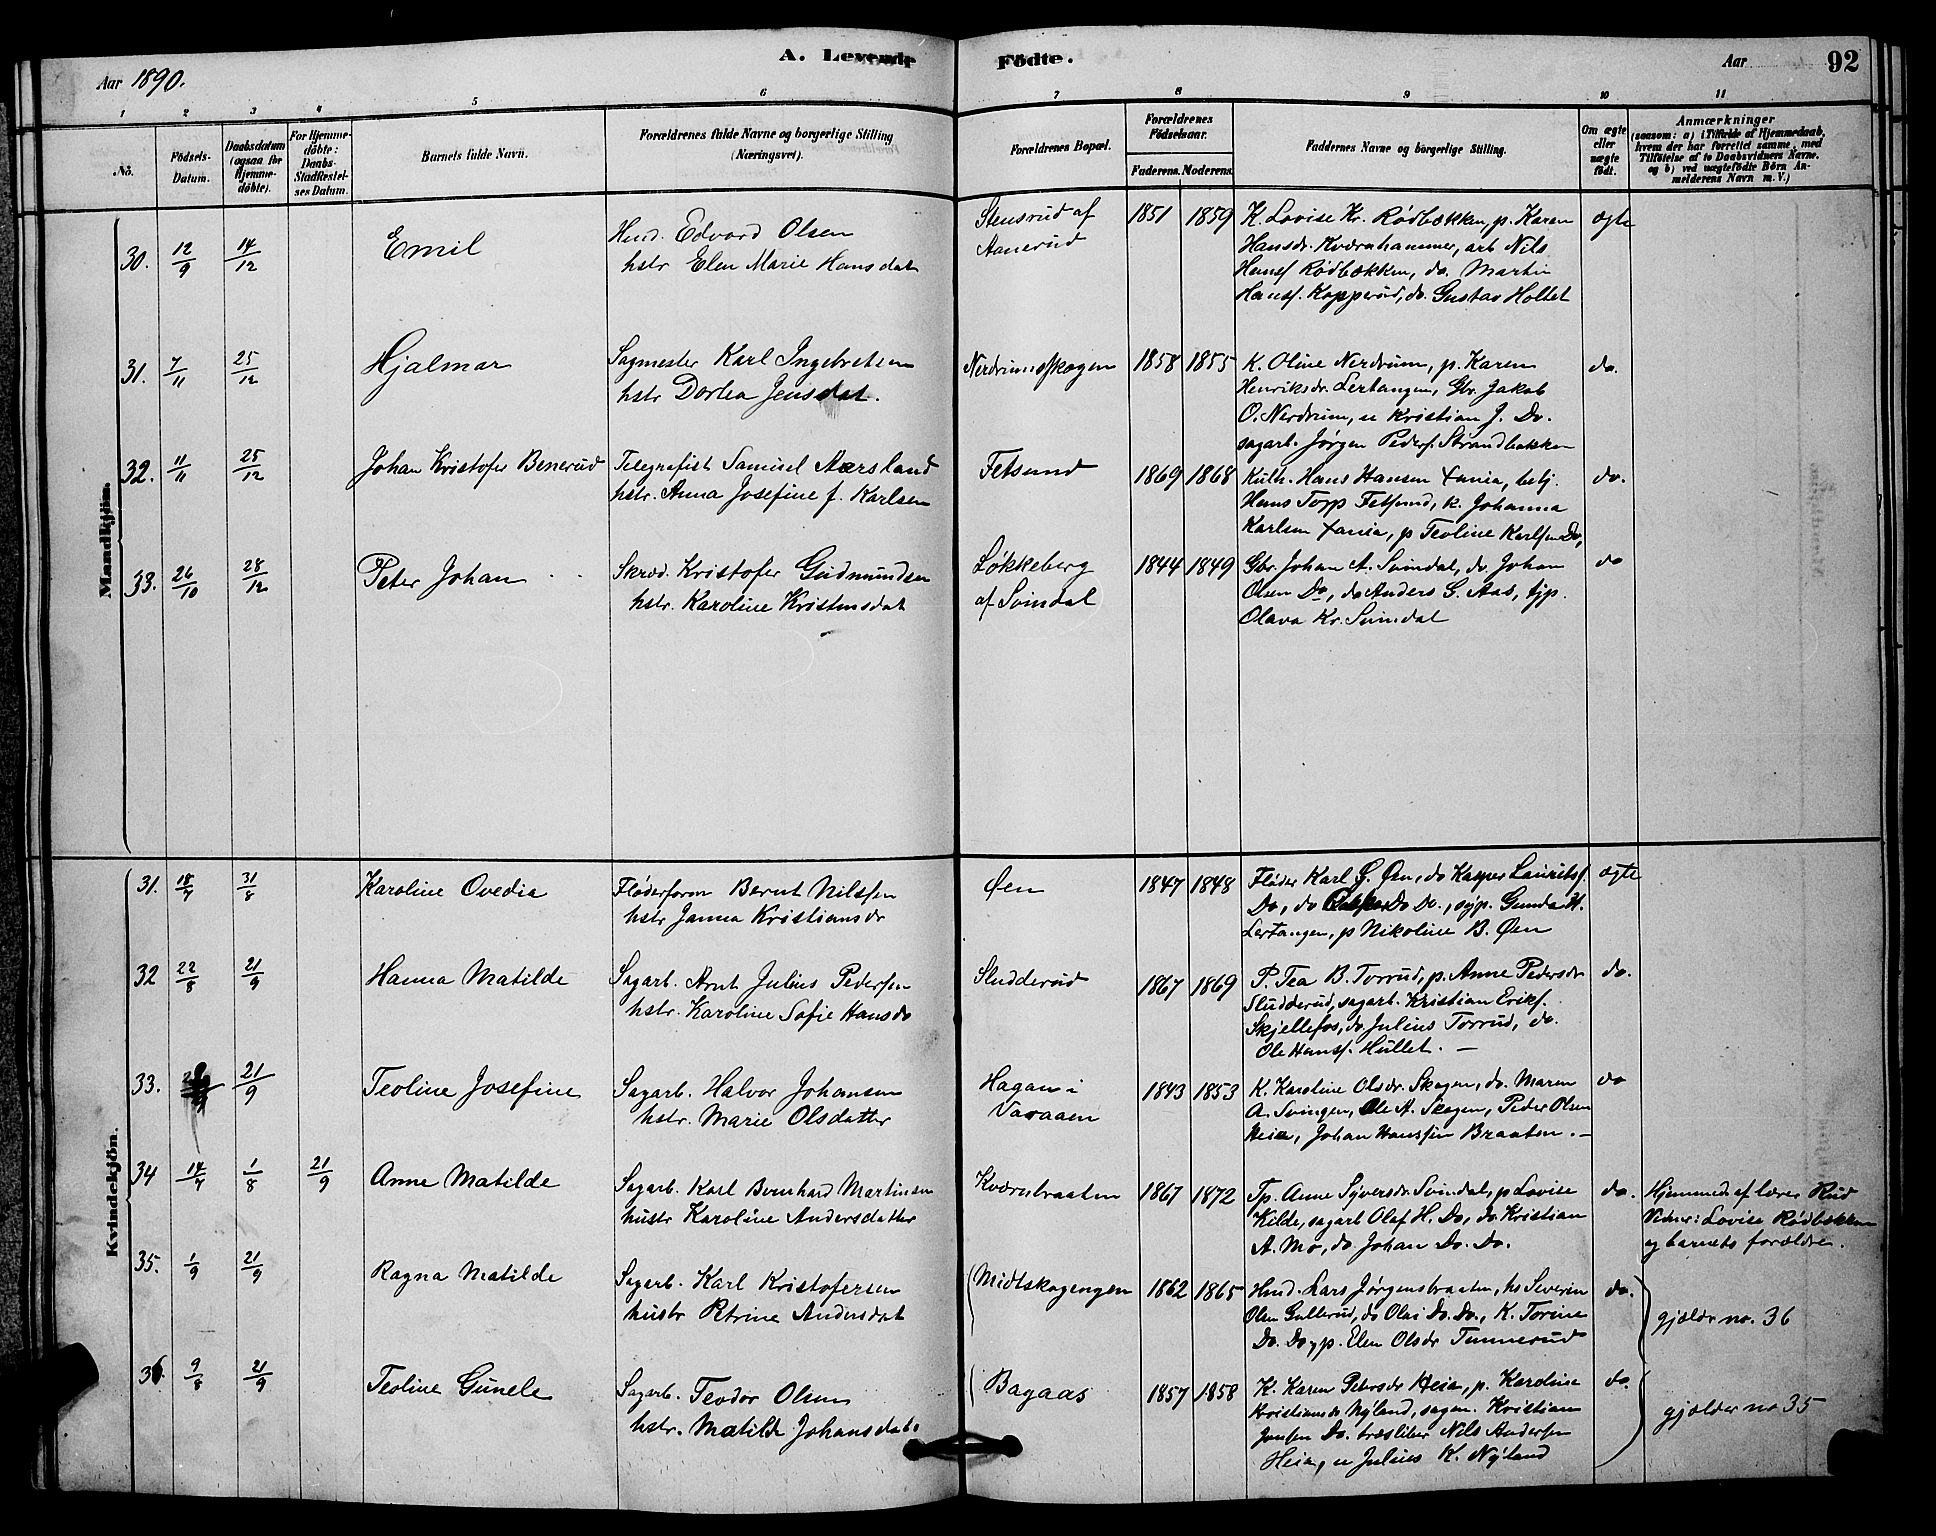 Aar 1890.
A. Levende Födte.
Aar
92
1
2
3
4
5
6
7
8
9
10
11
No.
Födsels-
Datum.
Daabsdatum
(ogsaa for
Hjemme-
döbte).
For Hjemme-
döbte:
Daabs-
Stadfæstel-
ses Datum.
Barnets fulde Navn.
Forældrenes fulde Navne og borgerlige Stilling
(Næringsvei).
Forældrenes Bopæl.
Forældrenes
Födselsaar.
Faderens. Moderens.
Faddernes Navne og borgerlige Stilling.
Om ægte
eller
uægte
födt.
Anmærkninger
(saasom: a) i Tilfælde af Hjemmedaab,
hvem der har forrettet samme, med
Tilföielse af to Daabsvidners Navne.
og b) ved uægtefödte Börn An-
melderens Navn m. V.)
Mandkjön.
30. 12/9 14/12
Emil
Hmd. Edvard Olsen
hstr Elen Marie Hansdat
Stensrud af
Aanerud
1851 1859
K Lovise Kr. Rødbækken, p. Karen
Hansdr. Kværnhammer, arb Nils
Hansf Rødbækken, do. Martin
Hansf. Kopperud, do. Gustav Holtet
ægte
31. 7/11 25/12
Hjalmar
Sagmester Karl Ingebretsen
hstr Dortea Jensdat.
Nerdrumsskogen
1858 1855
K. Oline Nerdrum, p. Karen
Henriksdr. Lertangen, Gbr. Jakob
O. Nerdrum, u Kristian J. Do.
sagarb. Jørgen Pedersf. Strandbakken
do.
32. 11/11 25/12
Johan Kristofer Benerud
Telegrafist Samuel Aarsland
hstr. Anna Josefine f. Karlsen
Fetsund
1869 1868
Kuth. Hans Hansen Xania, betj.
Hans Torp Fetsund, k. Johanna
Karlsen Xania, p Teoline Karlsen Do,
do.
33. 26/10 28/12
Peter Johan
Skræd. Kristofer Gudmundsen
hstr. Karoline Kristensdat
Løkkeberg
af Svindal
1844 1849
Gbr. Johan A. Svindal, do. Johan
Olsen Do, do Anders G. Aas, tjp.
Olava Kr. Svindal
do
Kvindekjön.
31. 18/7 31/8
Karoline Ovedia
Fløderform Bernt Nilssen
hstr Janna Kristiansdr
Øen
1847 1848
Fløder Karl G. Øen, do Kasper Lauritsf.
Do, do Do Do., syp. Gunda H.
Lertangen, p Nikoline B. Øen
ægte
32 22/8 21/9
Hanna Matilde
Sagarb. Arnt Julius Pedersen
hstr. Karoline Sofie Hansdr
Sludderud
1867 1869
P. Tea B. Torrud, p. Anne Pedersdr
Sludderud, sagarb. Kristian Eriks.
Skjellefos, do Julius Torrud, do.
Ole Hansf. Hullet. —
do.
33. 21/9
Teoline Josefine
Sagarb. Halvor Johansen
hstr. Marie Olsdatter
Hagan i
Varaaen
1843 1853
K. Karoline Olsdr. Skogen, do. Maren
A. Svingen, Ole A. Skogen, Peder Olsen
Heia, Johan Hanssen Braaten. —
do
34 14/7 1/8 21/9
Anne Matilde
Sagarb. Karl Bernhard Martinsen
hustr Karoline Andersdatter
Kværnbraaten
1867 1872
Tp. Anne Syversdr Svindal, p Lovise
Kilde, sagarb Olaf H. Do, do Kristian
A. Mo, do Johan Do. Do.
do.
Hjemmed af lærer Rud
Vidner: Lovise Rødbækken
og barnets forældre.
35. 1/9 21/9
Ragna Matilde
Sagarb. Karl Kristofersen
hustr Petrine Andersdat
Midtskogengen
1862 1865
Hmd. Lars Jørgensbraaten, hs Severin
Olsen Gullerud, do Olai Do. Do., K. Torine
Do. Do, p. Elen Olsdr Tunnerud
do.
gjælder no. 36
36. 9/8 21/9
Teoline Gunele
Sagarb. Teodor Olsen
hstr. Matilde Johansdat.
Bagaas
1857 1858
K. Karen Petersdr Heia, p. Karoline
Kristiansdr Nyland, sagm. Kristian
Jensen Do. træsliber Nils Andersen
Heia, u Julius K. Nyland
do.
gjælder no 35